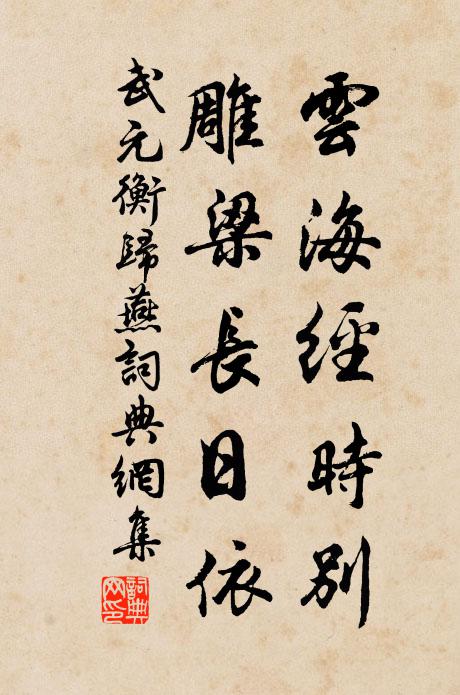 雲海經時別
雕梁長日依
武元衡歸燕詞典網集
詞典网印